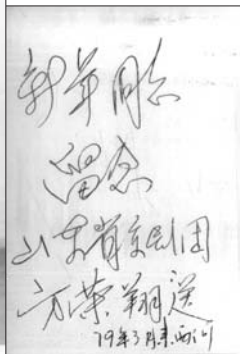 新华同志
留念
山东省京剧团
方荣翔送
79年3月来西